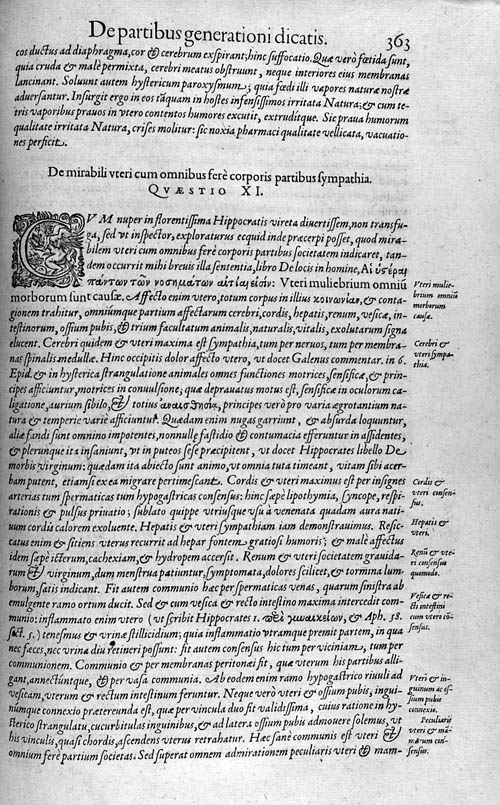 De partibus generationi dicatis. 363
eos ductus ad diaphragma, cor & cerebrum exspirant; hinc suffocatio. Quæ verò fœtida sunt,
quia cruda & malè permixta, cerebri meatus obstruunt, neque interiores eius membranas
lancinant. Soluunt autem hystericum paroxysmum; quia fœdi illi vapores naturæ nostræ
aduersantur. Insurgit ergo in eos tãquam in hostes infensissimos irritata Natura; & cum te-
tris vaporibus prauos in vtero contentos humores excutit, extruditque. Sic praua humorum
qualitate irritata Natura, crises molitur: sic noxia pharmaci qualitate vellicata, vacuatio-
nes perficit.
De mirabili vteri cum omnibus ferè corporis partibus sympathia.
QVÆSTIO XI.
CVM nuper in florentissima Hippocratis vireta diuertissem, non transfu-
ga, sed vt inspector, exploraturus ecquid inde præcerpi posset, quod mira-
bilem vteri cum omnibus ferè corporis partibus societatem indicaret, tan-
dem occurrit mihi breuis illa sententia, libro De locis in homine, Αἱ ὑστέραι
πάντων τῶν νοσημάτων αἴτιαί εἰσίν: Vteri muliebrium omniũ
morborum sunt causæ. Affecto enim vtero, totum corpus in illius κοινωνίαν, & conta-
gionem trahitur, omniumque partium affectarum cerebri, cordis, hepatis, renum, vesicæ, in-
testinorum, ossium pubis, & trium facultatum animalis, naturalis, vitalis, exolutarum signa
elucent. Cerebri quidem & vteri maxima est sympathia, tum per neruos, tum per membra-
nas spinalis medullæ. Hinc occipitis dolor affecto vtero, vt docet Galenus commentar. in 6.
Epid. & in hysterica strangulatione animales omnes functiones motrices, sensificæ, & prin-
cipes afficiuntur, motrices in conuulsione; quæ deprauatus motus est, sensificæ in oculorum ca-
ligatione, aurium sibilo, & totius ἀναισθησία, principes verò pro varia ægrotantium na-
tura & temperie variè afficiuntur. Quædam enim nugas garriunt, & absurda loquuntur,
aliæ fandi sunt omnino impotentes, nonnullæ fastidio & contumacia efferuntur in assidentes,
& plerunque ita insaniunt, vt in puteos sese præcipitent, vt docet Hippocrates libello De
morbis virginum: quædam ita abiecto sunt animo, vt omnia tuta timeant, vitam sibi acer-
bam putent, etiamsi ex ea migrare pertimescant. Cordis & vteri maximus est per insignes
arterias tum spermaticas tum hypogastricas consensus: hinc sæpe lipothymia, syncope, respi-
rationis & pulsus priuatio; sublato quippe vtriusque vsu à venenata quadam aura nati-
uum cordis calorem exoluente. Hepatis & vteri sympathiam iam demonstrauimus. Resic-
catus enim & sitiens vterus recurrit ad hepar fontem gratiosi humoris; & malè affectus
idem sæpè icterum, cachexiam, & hydropem accersit. Renum & vteri societatem grauida-
rum & virginum, dum menstrua patiuntur, symptomata, dolores scilicet, & tormina lum-
borum, satis indicant. Fit autem communio hæc per spermaticas venas, quarum sinistra ab
emulgente ramo ortum ducit. Sed & cum vesica & recto intestino maxima intercedit com-
munio: inflammato enim vtero (vt scribit Hippocrates 1. περὶ γυναικείων, & Aph. 58.
sect. 5.) tenesmus & vrinæ stillicidium; quia inflammatio vtramque premit partem, in qua
nec fæces, nec vrina diu retineri possunt: fit autem consensus hic tum per viciniam, tum per
communionem. Communio & per membranas peritonæi fit, quæ vterum his partibus alli-
gant, annectúntque, & per vasa communia. Ab eodem enim ramo hypogastrico riuuli ad
vesicam, vterum & rectum intestinum feruntur. Neque verò vteri & ossium pubis, ingui-
númque connexio prætereunda est, quæ per vincula duo fit validissima, cuius ratione in hy-
sterico strangulatu, cucurbitulas inguinibus, & ad latera ossium pubis admouere solemus, vt
his vinculis, quasi chordis, ascendens vterus retrahatur. Hæc sanè communis est vteri &
omnium ferè partium societas. Sed superat omnem admirationem peculiaris vteri & mam-
Vteri mulie-
brium omniũ
morborum
causæ.
Cerebri &
vteri sympa-
thia.
Cordis &
vteri consen-
sus.
Hepatis &
vteri.
Renũ & vte-
ri consensus
quomodo.
Vesicæ & re-
cti intestini
cum vtero cõ-
sensus.
Vteri & in-
guinum ac os-
sium pubis
connexio.
Peculiaris
vteri & mã-
marum con-
sensus.